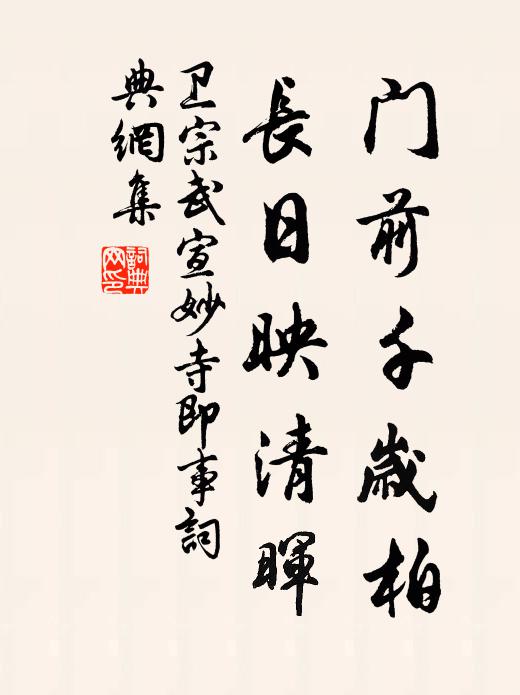 门前千歳柏
長日映清暉
卫宗武宣妙寺即事詞
典網集
詞典网印